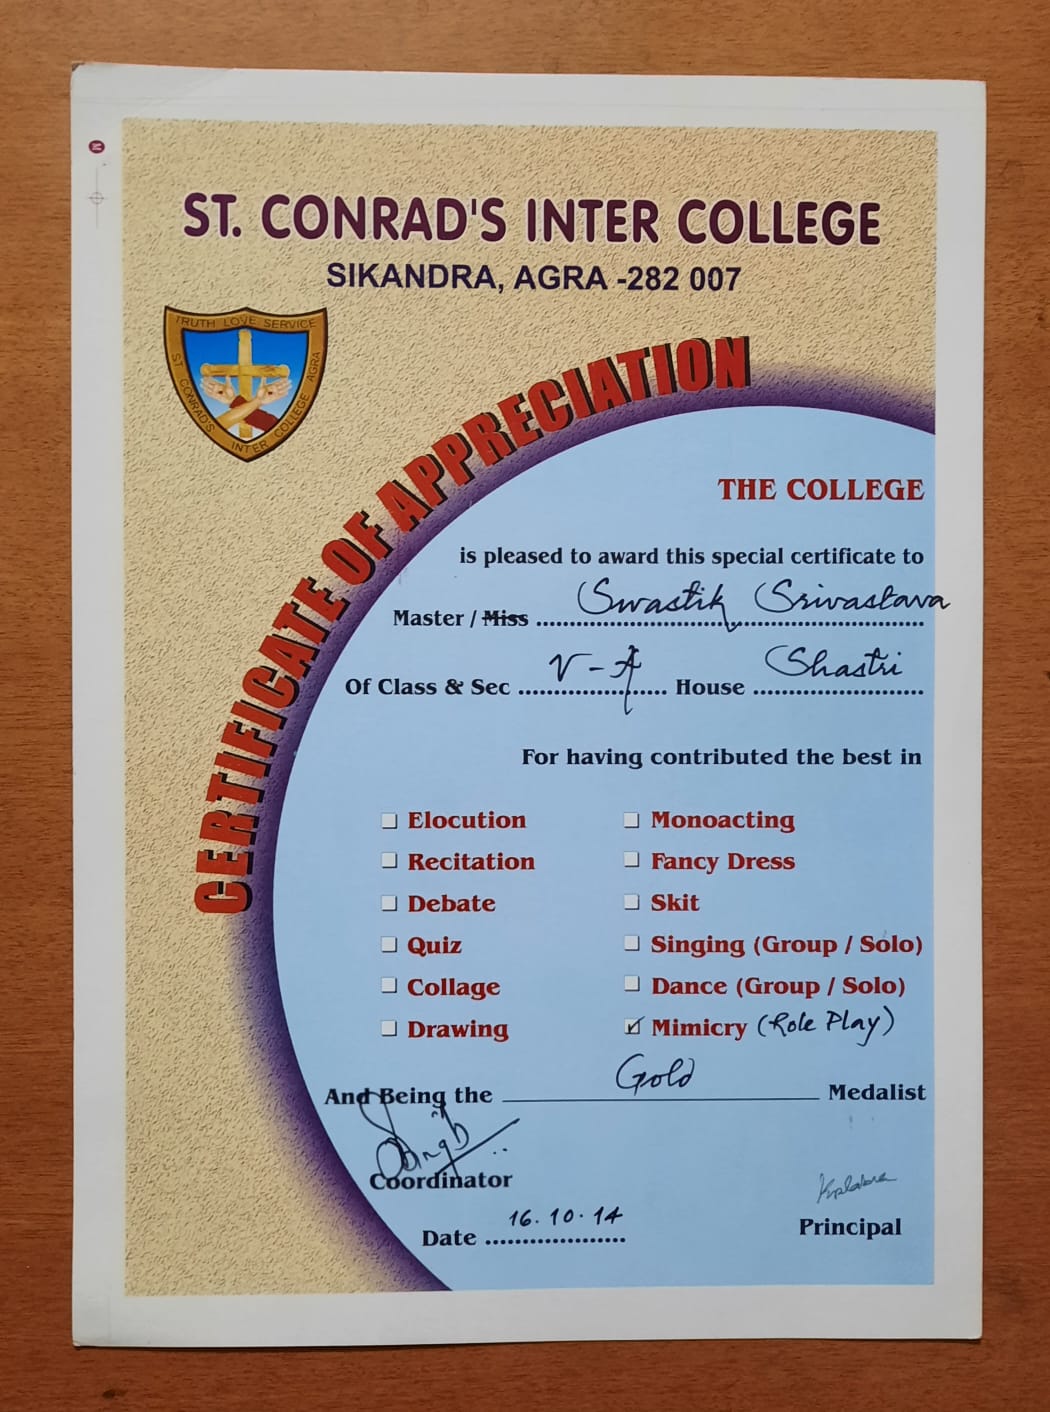 ST. CONRAD'S INTER COLLEGE
SIKANDRA, AGRA -282 007
TRUTH LOVE SERVICE
ST CONRAD'S INTER COLLEGE AGRA
CERTIFICATE OF APPRECIATION
THE COLLEGE
is pleased to award this special certificate to
Master / Miss Swastik Srivastava
Of Class & Sec V-A House Shastri
For having contributed the best in
Elocution Monoacting
Recitation Fancy Dress
Debate Skit
Quiz Singing (Group / Solo)
Collage Dance (Group / Solo)
Drawing Mimicry (Role Play)
And Being the Gold Medalist
Coordinator
Date 16.10.14
Principal